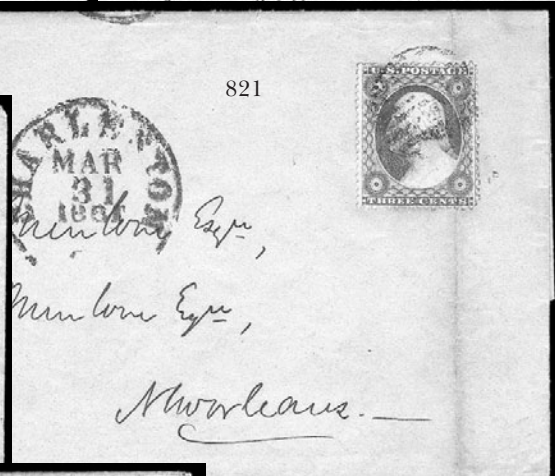 821
U.S. POSTAGE
THREE CENTS
CHARLESTON
MAR
31
1861
Esqr,
Esqr,
N Orleans. —